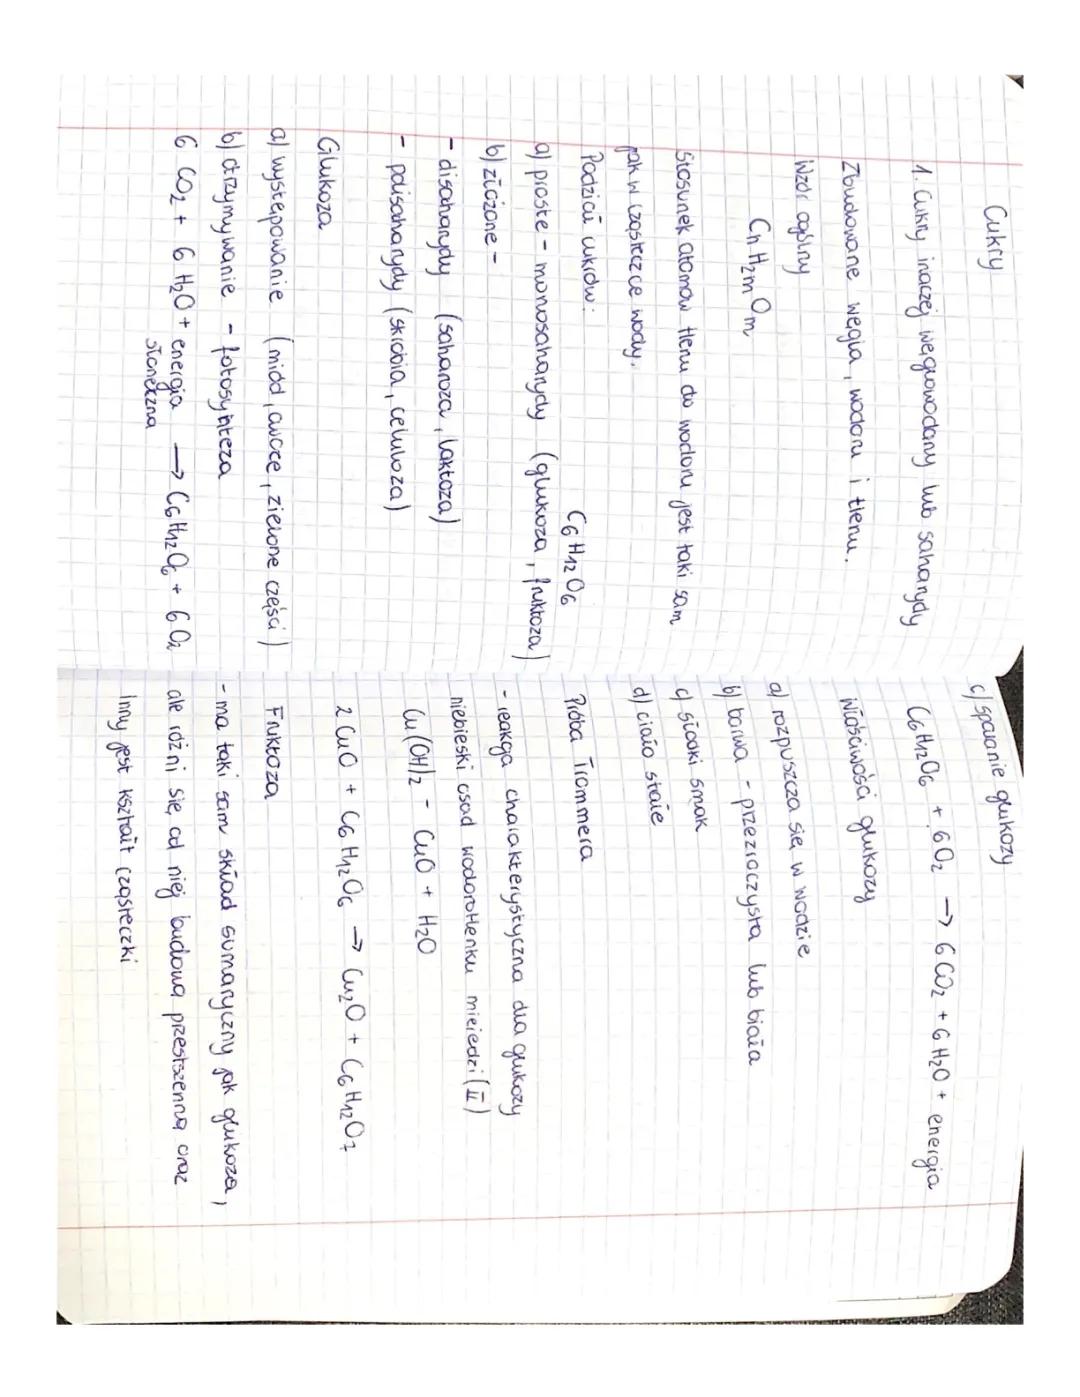 Cukry
1. Cukry inaczej węglowodany lub saharydy
Zbudowane węgla, wodoru i tlenu.
Wzór ogólny
Cn H2m Om
Stosunek atomów tlenu do wodoru jest taki sam
jak w cząsteczce wody.
Podział cukrów:
C6 H12 O6
a) proste - monosaharydy (glukoza, fruktoza)
b) złożone -
- disaharydy (saharoza, laktoza)
- polisaharydy (skrobia, celuloza)
Glukoza
a) występowanie (miód, owoce, zielone części)
b) otrzymywanie - fotosynteza
6 CO2 + 6 H2O + energia → C6H12O6 + 6O2
słoneczna
c) spalanie glukozy
C6H12O6 + 6O2 → 6CO2 + 6H2O + energia
Właściwości glukozy
a) rozpuszcza się w wodzie
b) barwa - przezroczysta lub biała
c) słodki smak
d) ciało stałe
Próba Trommera
- reakcja charakterystyczna dla glukozy
niebieski osad wodorotlenku mieiedzi (II)
Cu(OH)2 - CuO + H2O
2 CuO + C6H12O6 → Cu2O + C6H12O7
Fruktoza
- ma taki sam skład sumaryczny jak glukoza,
ale różni się od niej budową przestrzenną oraz
Inny jest kształt cząsteczki